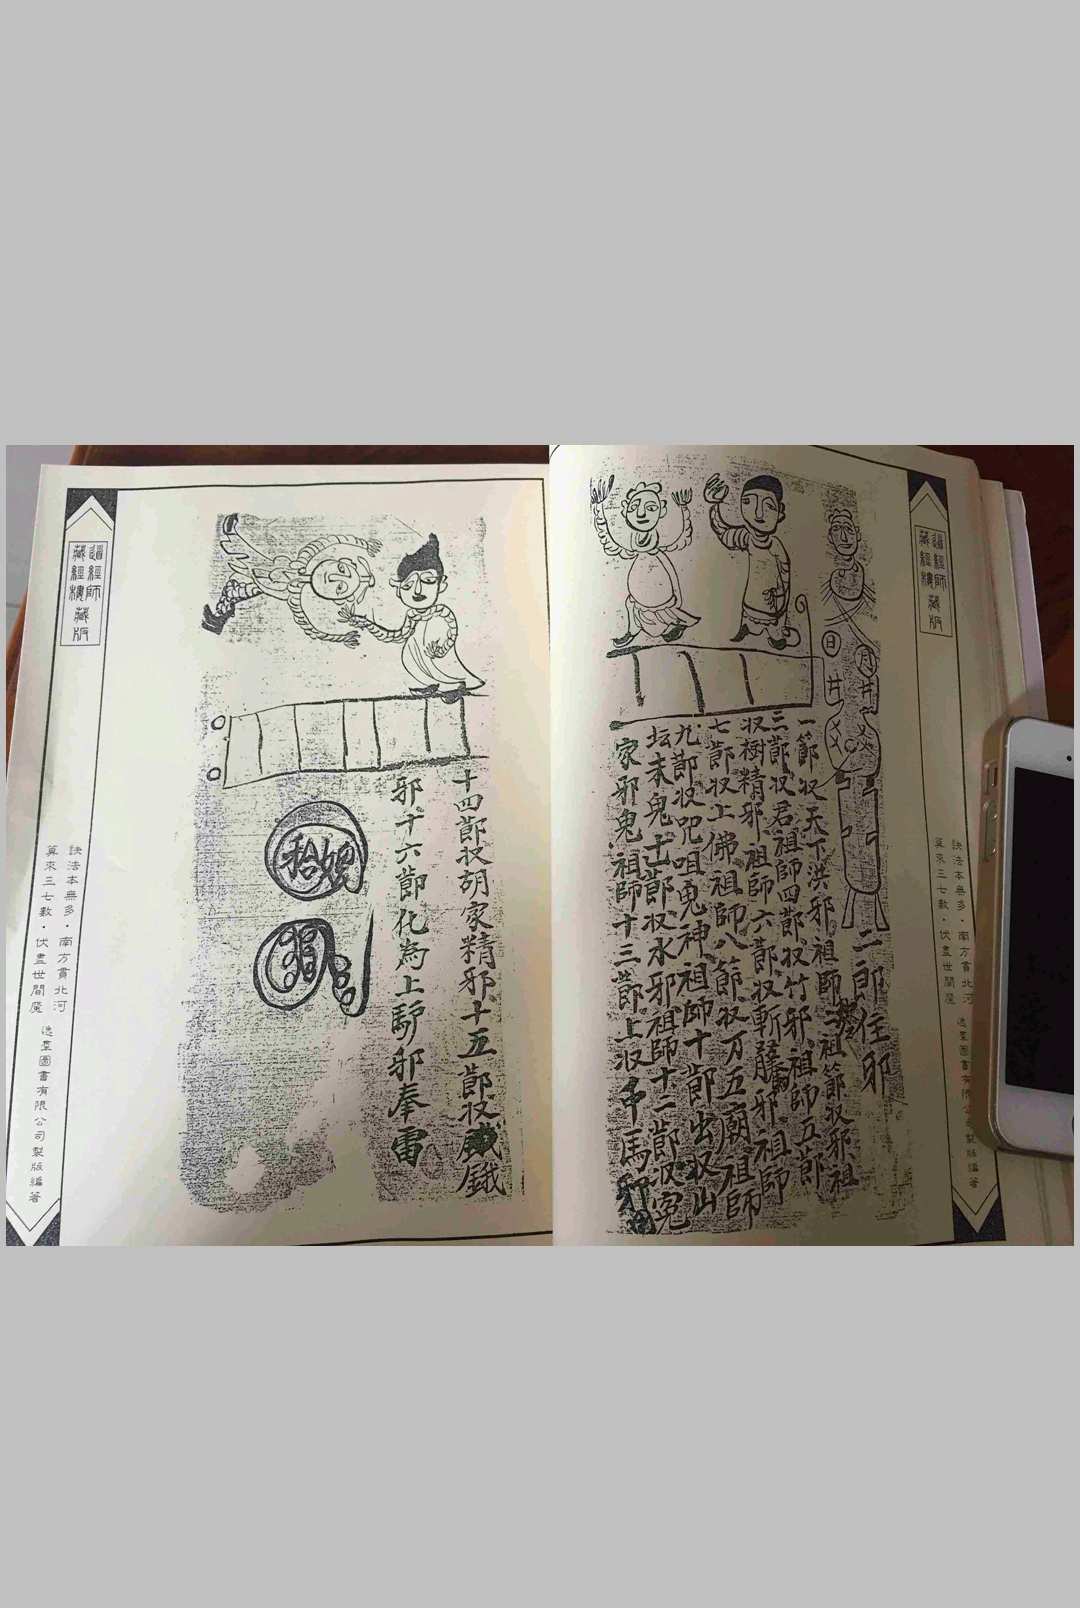 道經師
藏經樓藏版
訣法本無多·南方貫北河
算來三七數·伏盡世間魔
逸羣圖書有限公司製版編著
日
月
二郎收邪
一節収天下洪邪祖師二節収邪祖
三節収君祖師四節収竹邪祖師五節
収樹精邪祖師六節収斬藤邪祖師
七節収上佛祖師八節収万五廟祖師
九節収咒咀鬼神祖師十節出収山
坛未鬼十一節収水邪祖師十二節収冤
家邪鬼祖師十三節上収吊馬邪
十四節収胡家精邪十五節収
邪十六節化為上馿邪奉雷
道經師
藏經樓藏版
訣法本無多·南方貫北河
算來三七數·伏盡世間魔
逸羣圖書有限公司製版編著